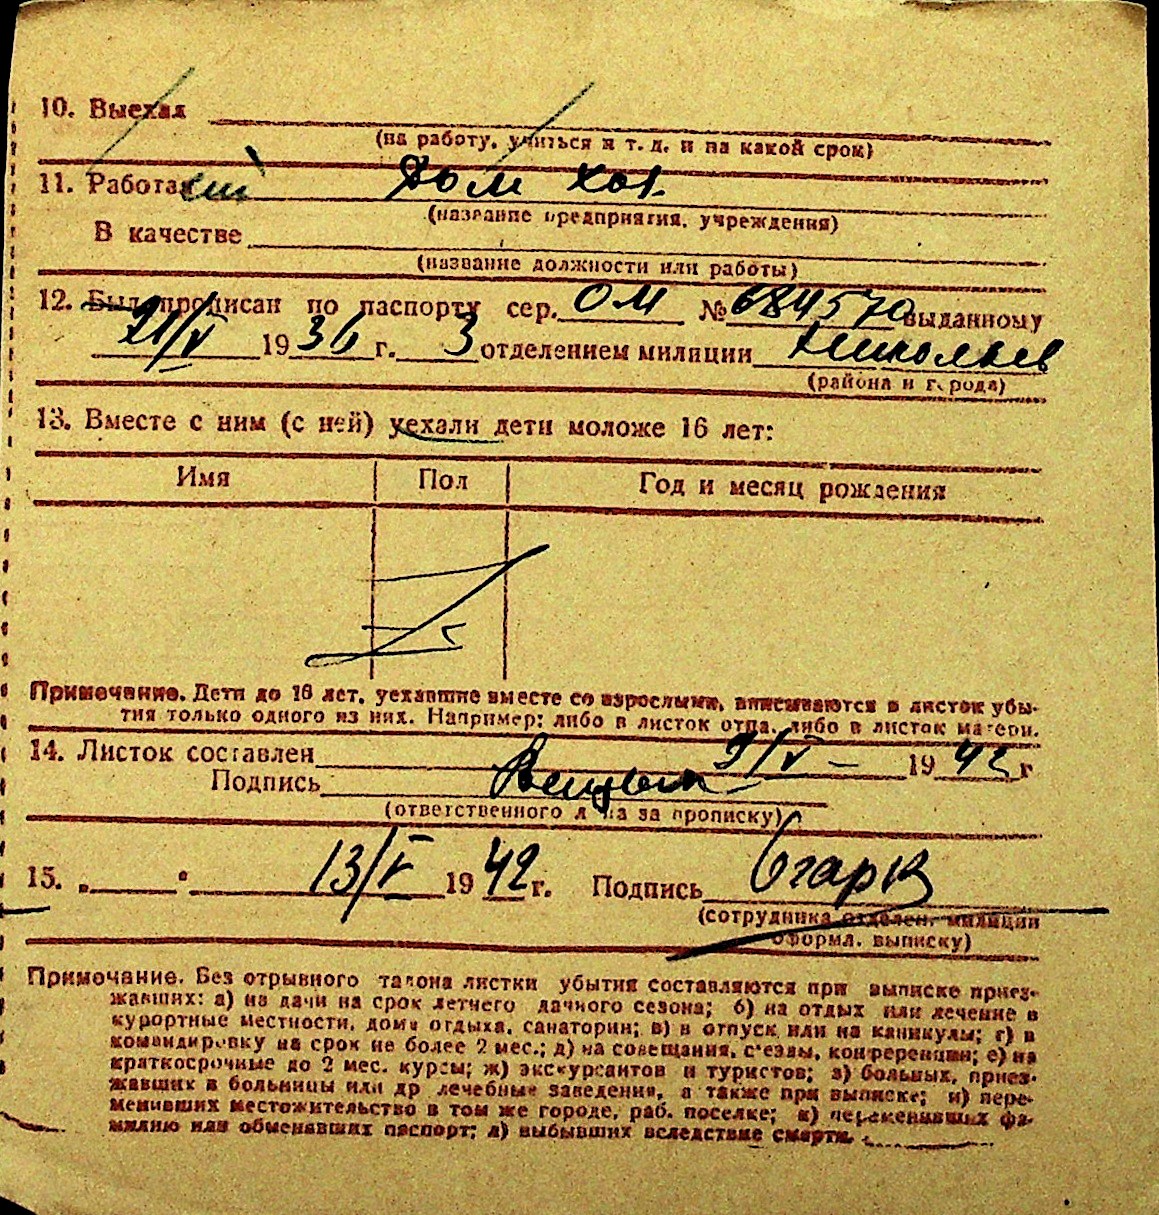 10. Выехал
(на работу, учиться и т. д. и на какой срок)
11. Работал Дом хоз.
(название предприятия, учреждения)
В качестве
(название должности или работы)
12. Был прописан по паспорту сер. ОМ № 684570 выданному
21/V 1936 г. 3 отделением милиции Николаев
(района и города)
13. Вместе с ним (с ней) уехали дети моложе 16 лет:
Имя Пол Год и месяц рождения
Примечание. Дети до 16 лет, уехавшие вместе со взрослыми, вписываются в листок убы-
тия только одного из них. Например: либо в листок отца, либо в листок матери.
14. Листок составлен 9/V – 1942 г
Подпись
(ответственного лица за прописку)
15. „ " 13/V 1942 г. Подпись Огарк
(сотрудника отделен. милиции
оформл. выписку)
Примечание. Без отрывного талона листки убытия составляются при выписке приез-
жавших: а) на дачи на срок летнего дачного сезона; б) на отдых или лечение в
курортные местности, дома отдыха, санатории; в) в отпуск или на каникулы; г) в
командировку на срок не более 2 мес.; д) на совещания, с'езды, конференции; е) на
краткосрочные до 2 мес. курсы; ж) экскурсантов и туристов; з) больных, приез-
жавших в больницы или др лечебные заведения, а также при выписке; и) пере-
менивших местожительство в том же городе, раб. поселке; к) переменивших фа-
милию или обменявших паспорт; л) выбывших вследствие смерти.